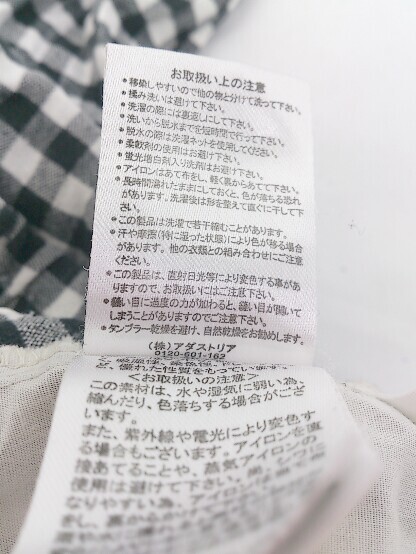 お取扱い上の注意
●移染しやすいので他の物と分けて洗って下さい。
●揉み洗いは避けて下さい。
●洗濯の際には裏返しにして下さい。
●洗いから脱水までを短時間で行って下さい。
●脱水の際は洗濯ネットを使用してください。
●柔軟剤の使用はお避け下さい。
●蛍光増白剤入り洗剤はお避け下さい。
●アイロンはあて布をし、軽く裏からあてて下さい。
●長時間濡れたままにしておくと、色が落ちる恐れ
があります。洗濯後は形を整えて直ぐに干して下
さい。
●この製品は洗濯で若干縮むことがあります。
●汗や摩擦(特に湿った状態)により色が移る場合
が有ります。他の衣類との組み合わせにご注意
ください。
●この製品は、直射日光等により変色する事があ
りますので、お取扱いにはご注意下さい。
●縫い目に過度の力が加わると、縫い目が開いて
しまうことがありますのでご注意下さい。
●タンブラー乾燥を避け、自然乾燥をお勧めします。
(株)アダストリア
0120-601-162
優れた性質をもっています。
<お取扱いの注意>
この素材は、水や湿気に弱い為、
縮んだり、色落ちする場合がござ
います。
また、紫外線や電光により変色す
る場合もございます。アイロンを直
接あてることや、蒸気アイロンの
使用は避けて下さい。
なりやすい為、アイロンは